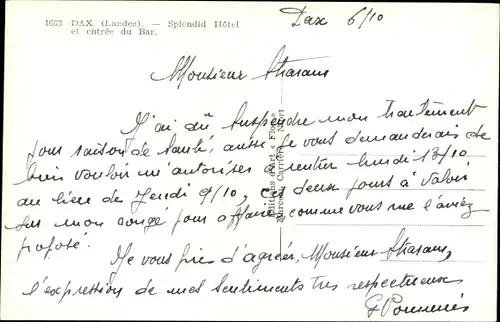 1663 DAX (Landes). — Splendid Hôtel
et entrée du Bar.
Dax 6/10
Monsieur
J'ai dû suspendre mon traitement
pour raison de santé, aussi je vous demanderais de
bien vouloir m'autoriser à rentrer lundi 13/10
au lieu de Jeudi 9/10, ces deux jours à valoir
sur mon congé pour affaires, comme vous me l'aviez
proposé.
Je vous prie d'agréer, Monsieur
l'expression de mes sentiments très respectueux
Editions d'Art « Flor »
Marcel Carrière, Niort